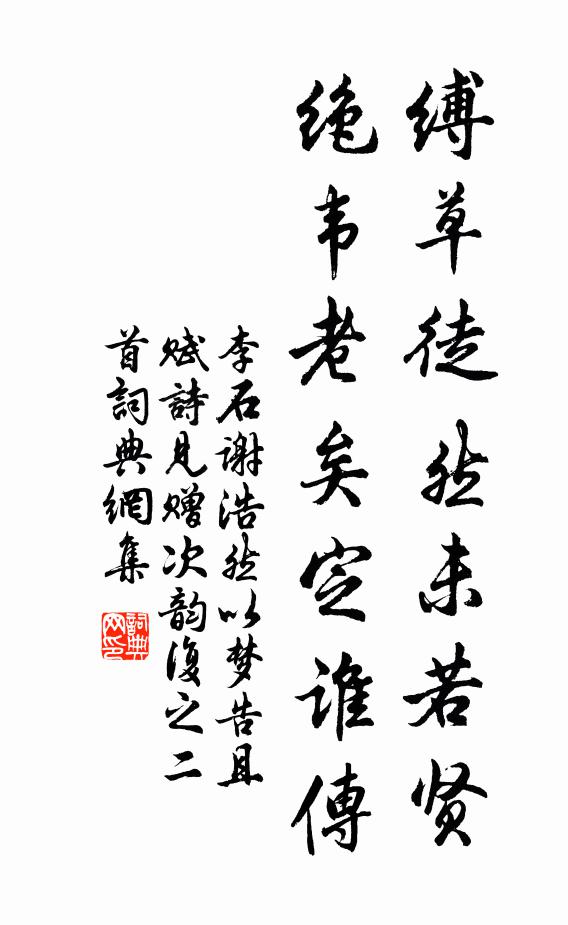 縛草徒然未若贤
绝韦老矣定谁傳
李石谢浩然以梦告且
赋詩见赠次韵復之二
首詞典網集
詞典
网印